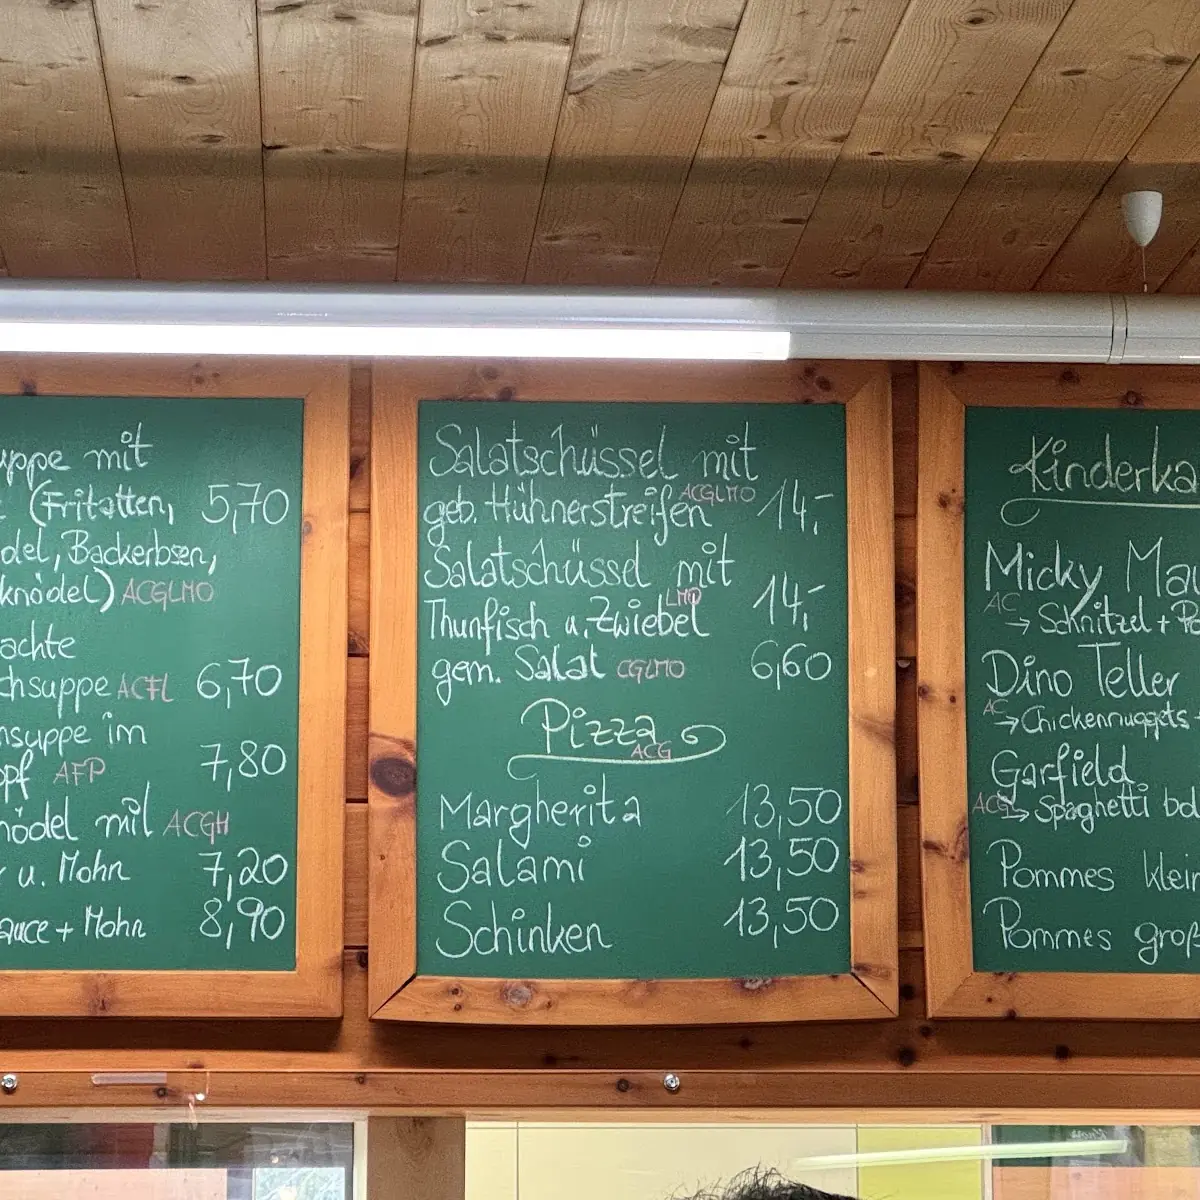 uppe mit
(Fritatten, 5,70
del, Backerbsen,
knödel) ACGLMO
achte
chsuppe ACFL 6,70
nsuppe im
opf AFP 7,80
nödel mit ACGH
u. Mohn 7,20
auce + Mohn 8,90
Salatschüssel mit
geb. Hühnerstreifen ACGLMO 14,-
Salatschüssel mit
Thunfisch u. Zwiebel LMO 14,-
gem. Salat CGLMO 6,60
Pizza
ACG
Margherita 13,50
Salami 13,50
Schinken 13,50
Kinderka
Micky Mau
AC → Schnitzel + Po
Dino Teller
AC → Chickennuggets
Garfield
ACG → Spaghetti bol
Pommes klein
Pommes groß